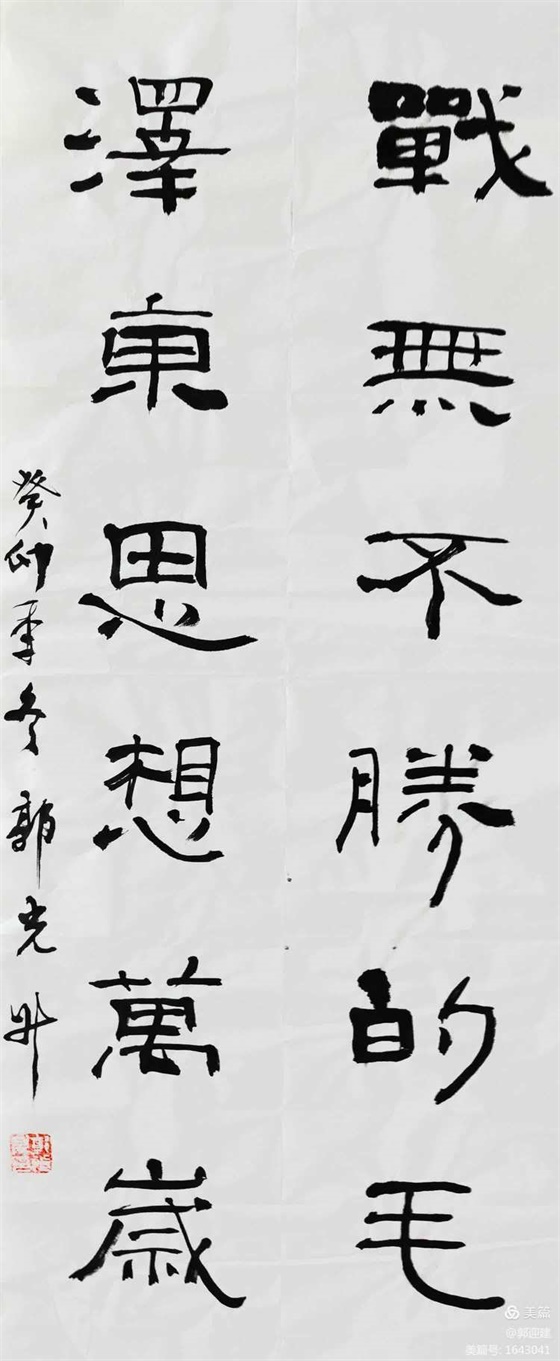 戰無不勝的毛
澤東思想萬歲
癸卯季冬郭光
美篇
美篇号: 1643041